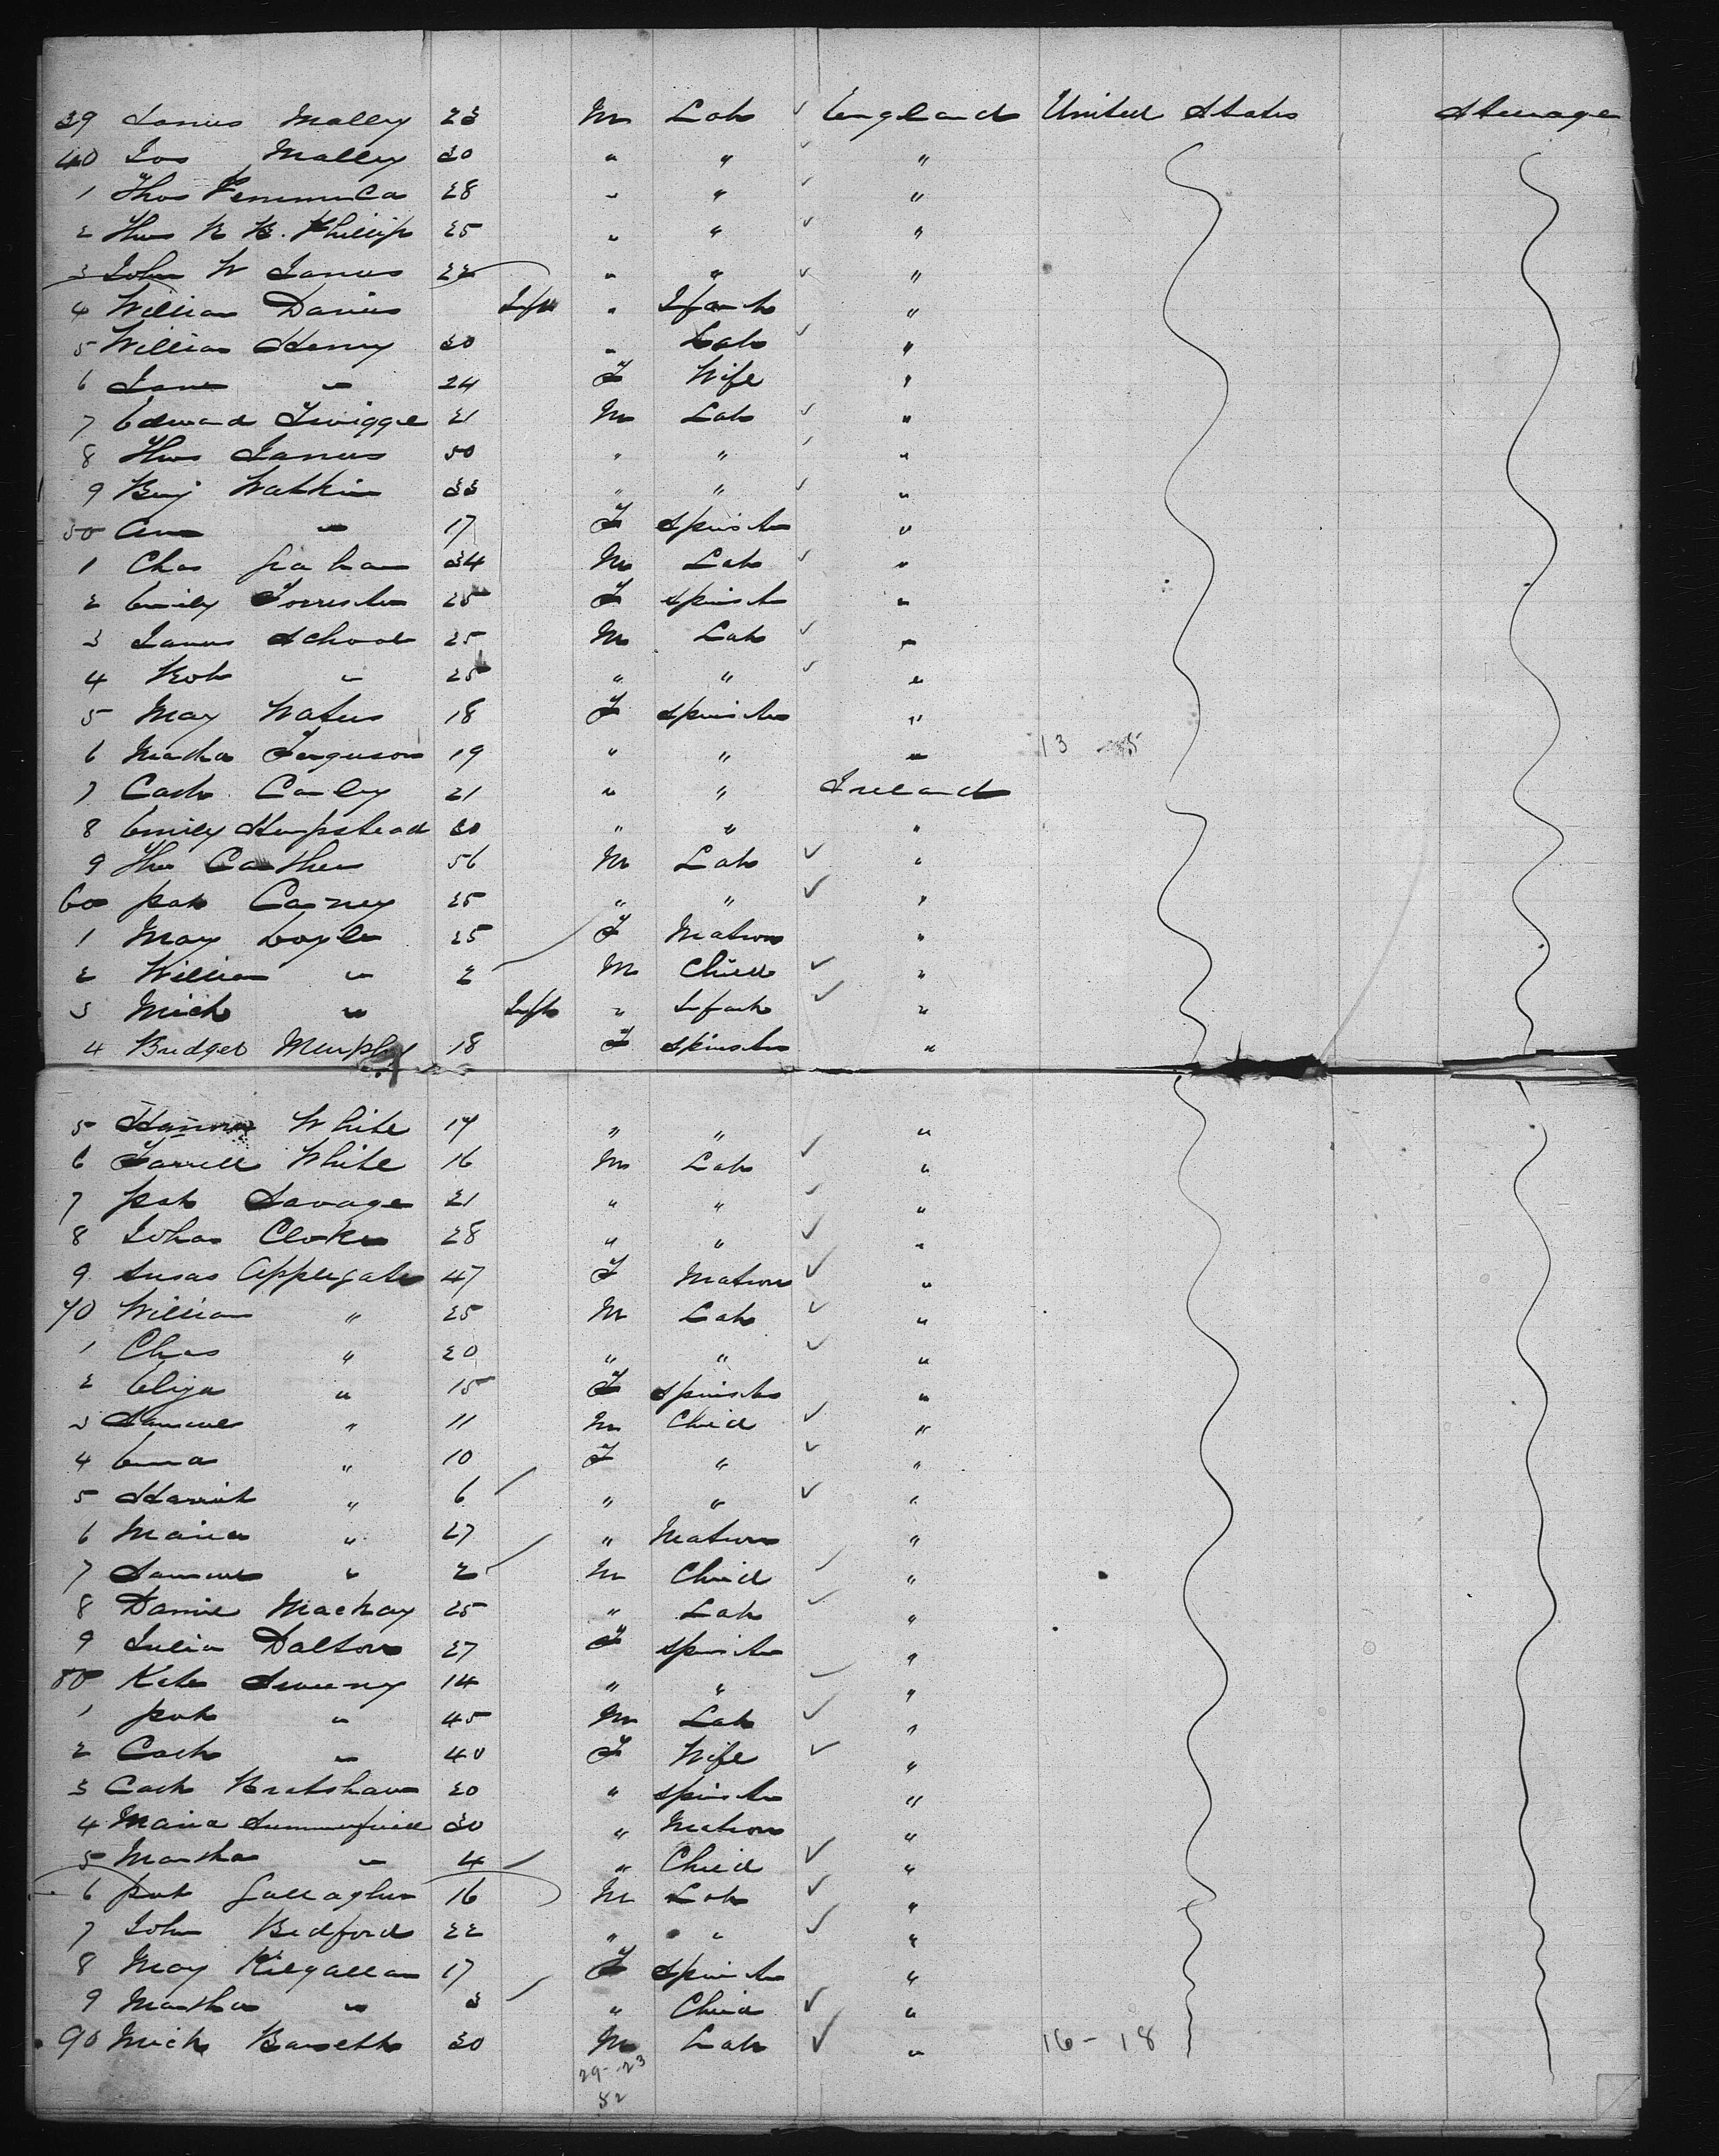 39 James Malley 23 M Lab ✓ England United States Steerage
40 Jos Malley 30 " " ✓ "
1 Thos 28 " " ✓ "
2 Thos R B. Phillip 25 " " ✓ "
3 John W James 22 " " ✓ "
4 William Davies Inft " Infant "
5 William Henry 30 " Lab ✓ "
6 Jane " 24 F Wife "
7 Edward Twigge 21 M Lab ✓ "
8 Thos James 50 " " ✓ "
9 Benj Watkin 33 " " ✓ "
50 Ann " 17 F Spinster "
1 Chas Graham 34 M Lab ✓ "
2 Emily Forrester 25 F Spinster "
3 James School 25 M Lab ✓ "
4 Rob " 25 " " ✓ "
5 Mary Waters 18 F Spinster "
6 Martha Ferguson 19 " " " 13 - 5
7 Cath Canley 21 " " Ireland
8 Emily Hempstead 20 " " "
9 Tho Carther 56 M Lab ✓ "
60 Pat Carney 25 " " ✓ "
1 Mary Doyle 25 F Matron "
2 William " 2 M Child ✓ "
3 Mich " Inft " Infant ✓ "
4 Bridget Murphy 18 F Spinster "
5 Hanora White 17 " " "
6 Farrell White 16 M Lab ✓ "
7 Pat Savage 21 " " ✓ "
8 Johan Cloker 28 " " ✓ "
9 Susan Applegate 47 F Matron ✓ "
70 William " 25 M Lab ✓ "
1 Chas " 20 " " ✓ "
2 Eliza " 15 F Spinster "
3 Samuel " 11 M Child ✓ "
4 Emma " 10 F " ✓ "
5 Harriet " 6 " " ✓ "
6 Maria " 27 " Matron "
7 Samuel " 2 M Child ✓ "
8 Daniel Mackay 25 " Lab ✓ "
9 Julia Dalton 27 F Spinster "
80 Kate Sweeny 14 " " ✓ "
1 Pat " 45 M Lab ✓ "
2 Cath " 40 F Wife ✓ "
3 Cath Bratshaw 20 " Spinster "
4 Maria Summerfield 30 " Matron "
5 Martha " 4 " Child ✓ "
6 Pat Gallagher 16 M Lab ✓ "
7 John Bedford 22 " " ✓ "
8 May Kilgallan 17 F Spinster "
9 Martha " 3 " Child ✓ "
90 Mich Barrett 30 M Lab ✓ " 16 - 18
29 - 23
52